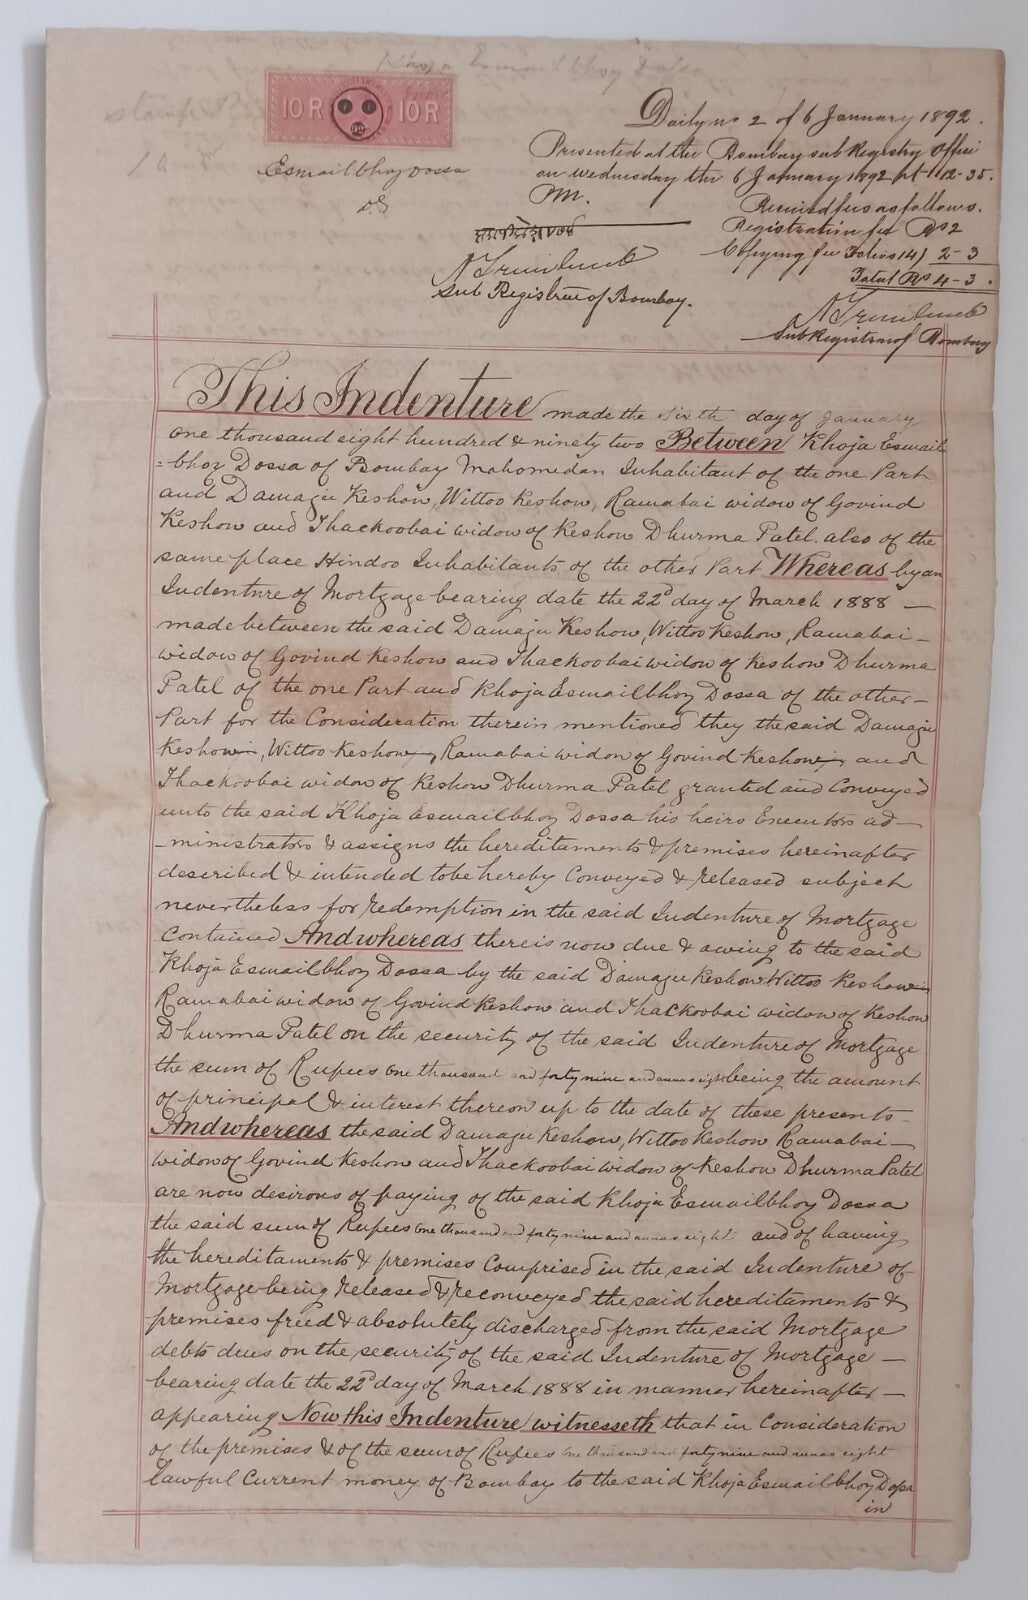 Khoja Esmailbhoy Dossa
10 R 10 R
Esmailbhoy Dossa
Daily no 2 of 6 January 1892.
Presented at the Bombay sub Registry Office
on Wednesday the 6 January 1892 at 12-35.
PM.
Received fees as follows.
Registration fee Rs 2
Copying fee Folios 14) 2-3
Total Rs 4-3.
Sub Registrar of Bombay.
Sub Registrar of Bombay
This Indenture made the sixth day of January
One thousand eight hundred & ninety two Between Khoja Esmail
=bhoy Dossa of Bombay Mahomedan Inhabitant of the one Part
and Damagu Keshow, Wittoo Keshow, Ramabai widow of Govind
Keshow and Thackoobai widow of Keshow Dhurma Patel. also of the
same place Hindoo Inhabitants of the other Part Whereas by an
Indenture of Mortgage bearing date the 22d day of March 1888 —
made between the said Damagu Keshow, Wittoo Keshow, Ramabai —
widow of Govind Keshow and Thackoobai widow of Keshow Dhurma
Patel of the one Part and Khoja Esmailbhoy Dossa of the other —
Part for the Consideration therein mentioned they the said Damagu
Keshow, Wittoo Keshow, Ramabai widow of Govind Keshow and
Thackoobai widow of Keshow Dhurma Patel granted and Conveyed
unto the said Khoja Esmailbhoy Dossa his heirs Executors ad—
—ministrators & assigns the hereditaments & premises hereinafter
described & intended to be hereby Conveyed & released subject
nevertheless for redemption in the said Indenture of Mortgage
Contained And whereas there is now due & owing to the said
Khoja Esmailbhoy Dossa by the said Damagu Keshow Wittoo Keshow
Ramabai widow of Govind Keshow and Thackoobai widow of Keshow
Dhurma Patel on the security of the said Indenture of Mortgage
the sum of Rupees One thousand and forty nine and annas eight being the amount
of principal & interest thereon up to the date of these presents —
And whereas the said Damagu Keshow, Wittoo Keshow Ramabai —
widow of Govind Keshow and Thackoobai widow of Keshow Dhurma Patel
are now desirous of paying of the said Khoja Esmailbhoy Dossa
the said sum of Rupees One thousand and forty nine and annas eight and of having
the hereditaments & premises Comprised in the said Indenture of
Mortgage being released & reconveyed the said hereditaments &
premises freed & absolutely discharged from the said Mortgage
debts dues on the security of the said Indenture of Mortgage —
bearing date the 22d day of March 1888 in manner hereinafter —
appearing Now this Indenture witnesseth that in Consideration
of the premises & of the sum of Rupees One thousand and forty nine and annas eight
lawful Current money of Bombay to the said Khoja Esmailbhoy Dossa
in